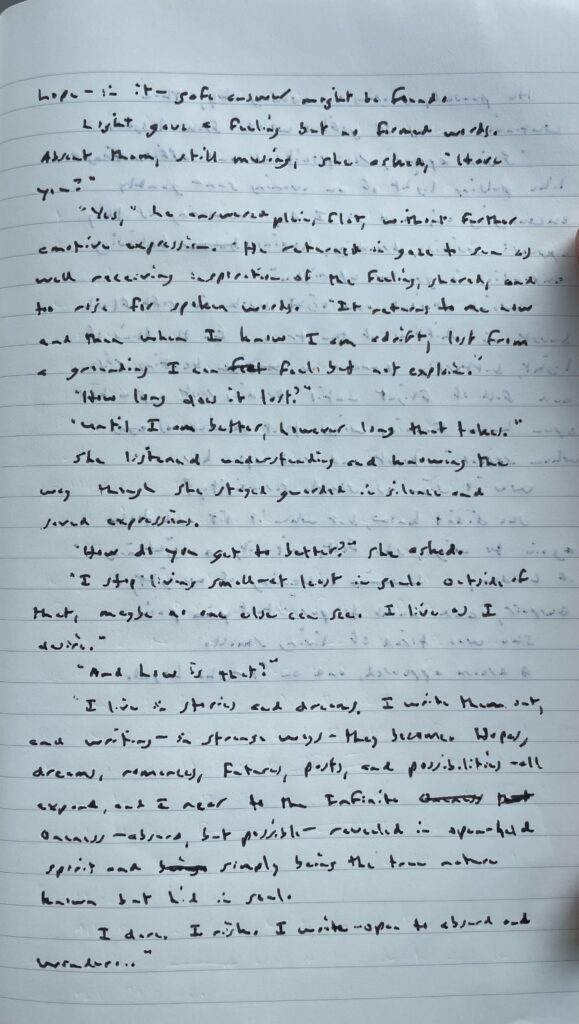 hope - in it - safe answer might be found.
Light gave a feeling but no formed words.
Absent them, still musing, she asked, "Have
you?"
"Yes," he answered plain, flat, without further
emotive expression. He returned in gaze to sun as
well receiving inspiration of the feeling, shared, and
to rise for spoken words. "It returns to me now
and then when I know I am adrift, lost from
a grounding I can feel but not explain."
"How long does it last?"
"Until I am better, however long that takes."
She listened understanding and knowing the
way though she stayed guarded in silence and
saved expressions.
"How do you get to better?" she asked.
"I stop living small - at least in soul. Outside of
that, maybe no one else can see. I live as I
desire."
"And how is that?"
"I live in stories and dreams. I write them out,
and writing - in strange ways - they become. Hopes,
dreams, romances, futures, pasts, and possibilities - all
expand, and I near to the Infinite
Oneness - absurd, but possible - revealed in open-held
spirit and simply being the true nature
known but hid in soul.
I dare. I risk. I write - open to absurd and
wonders..."